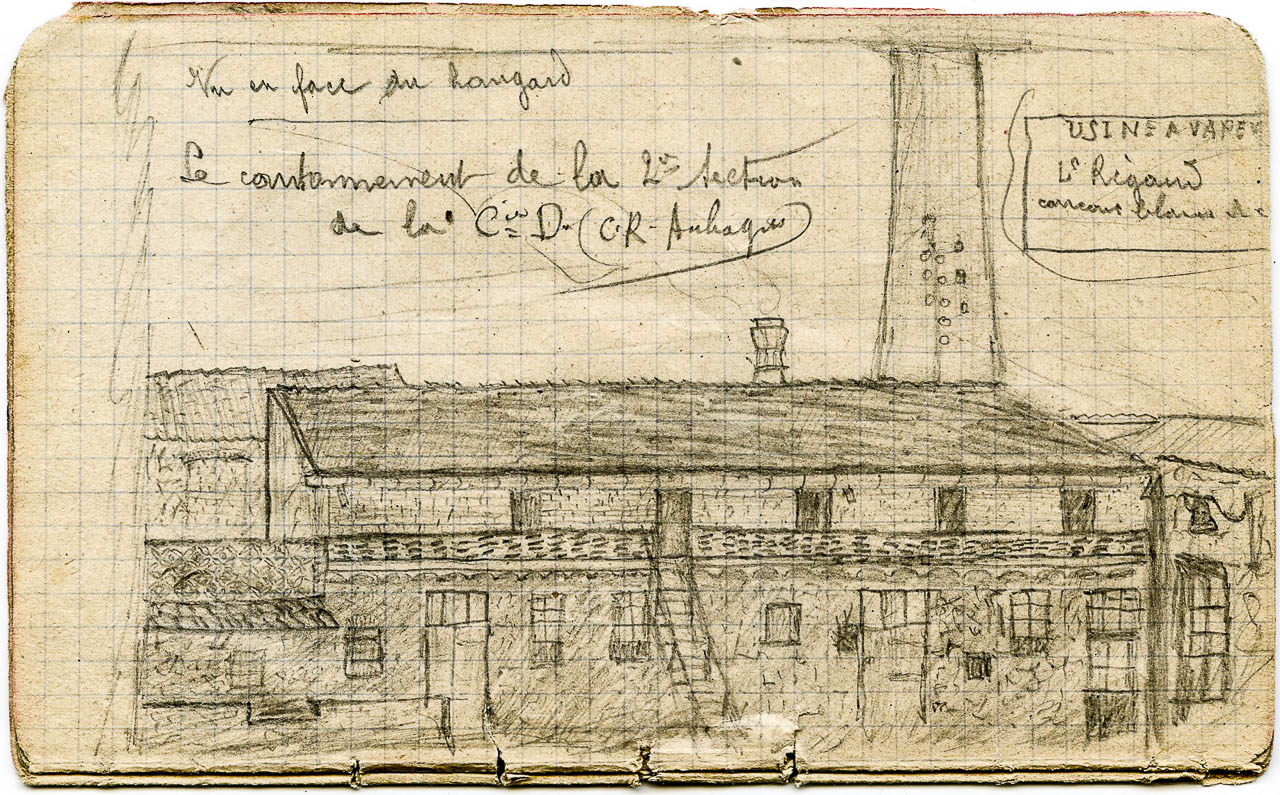 Vu en face du hangard
Le cantonnement de la 2e Section
de la Cie D. (C.R - Aubagne)
USINE A VAPEU
Rigaud
blanc